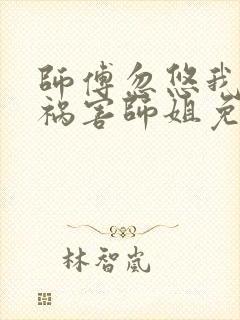 師傅忽悠我
祸害師姐免
林智嵐